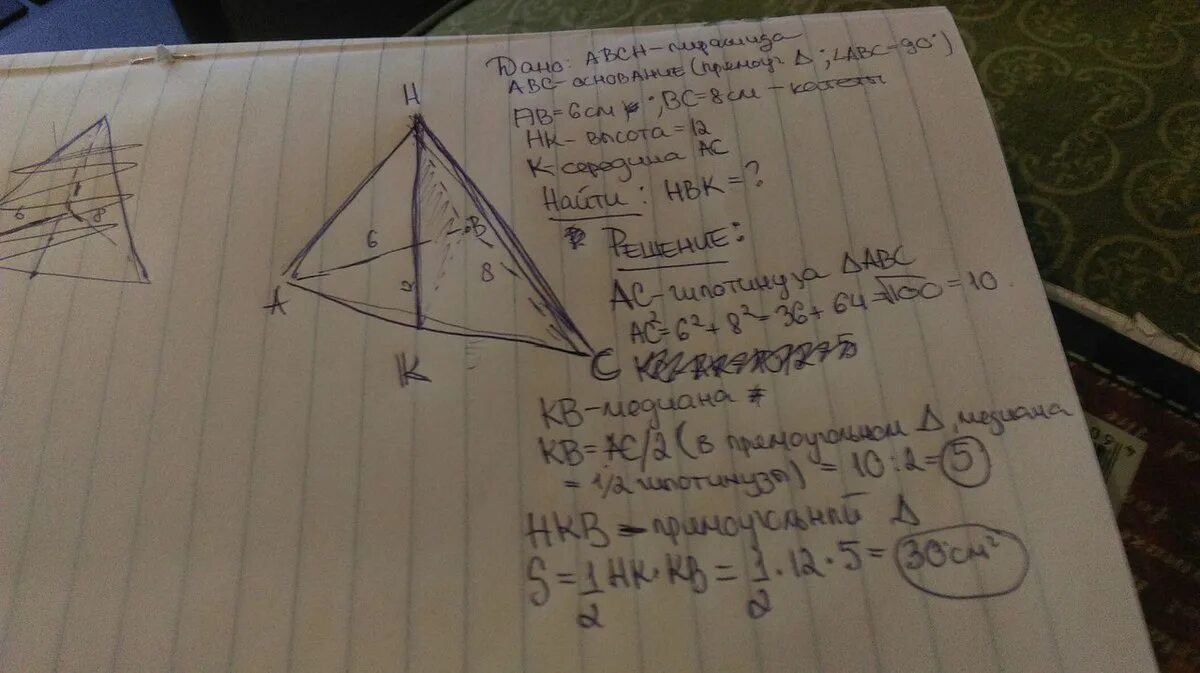 Дано: ABCH-пирамида
ABC-основание (прямоуг. Δ; ∠ABC=90°)
AB=6см; BC=8см - катеты
HK-высота=12
K-середина AC
Найти: HBK=?
РЕШЕНИЕ:
AC-гипотинуза ΔABC
AC²=6²+8²=36+64=√100=10.
KB-медиана
KB=AC/2 (в прямоугольном Δ, медиана
= 1/2 гипотинузы) = 10:2=5
HKB-прямоугольный Δ
S=1/2 HK·KB=1/2·12·5=30см²
H
6
B
8
A
K
C
6
8